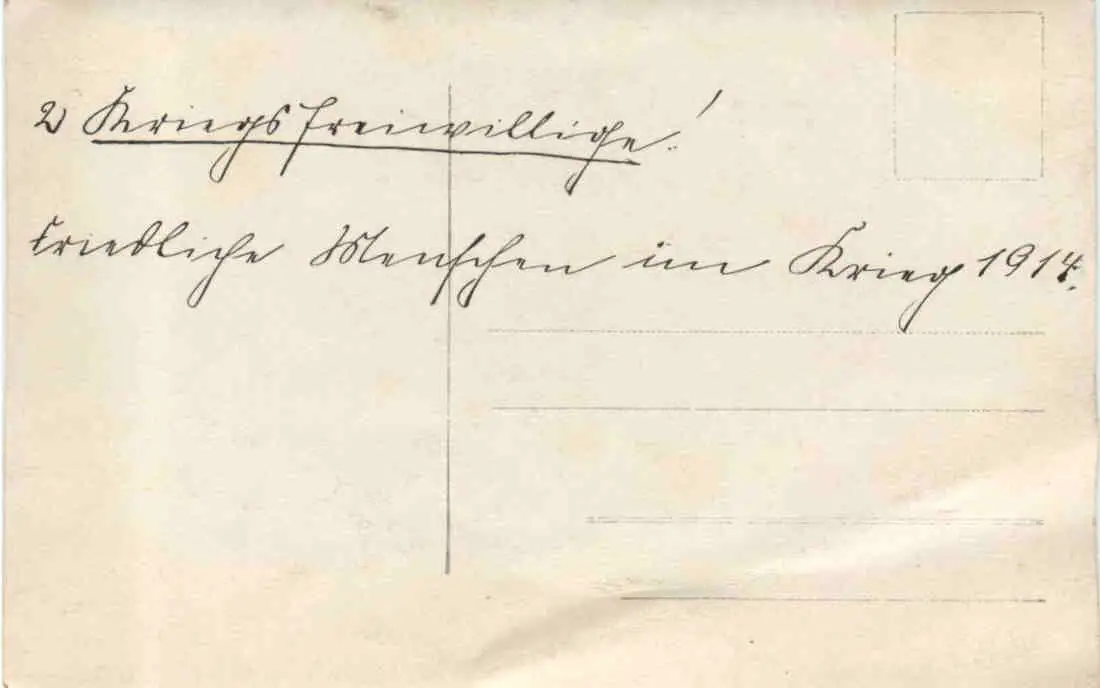 2 Kriegsfreiwillige!
Friedliche Menschen im Krieg 1914.